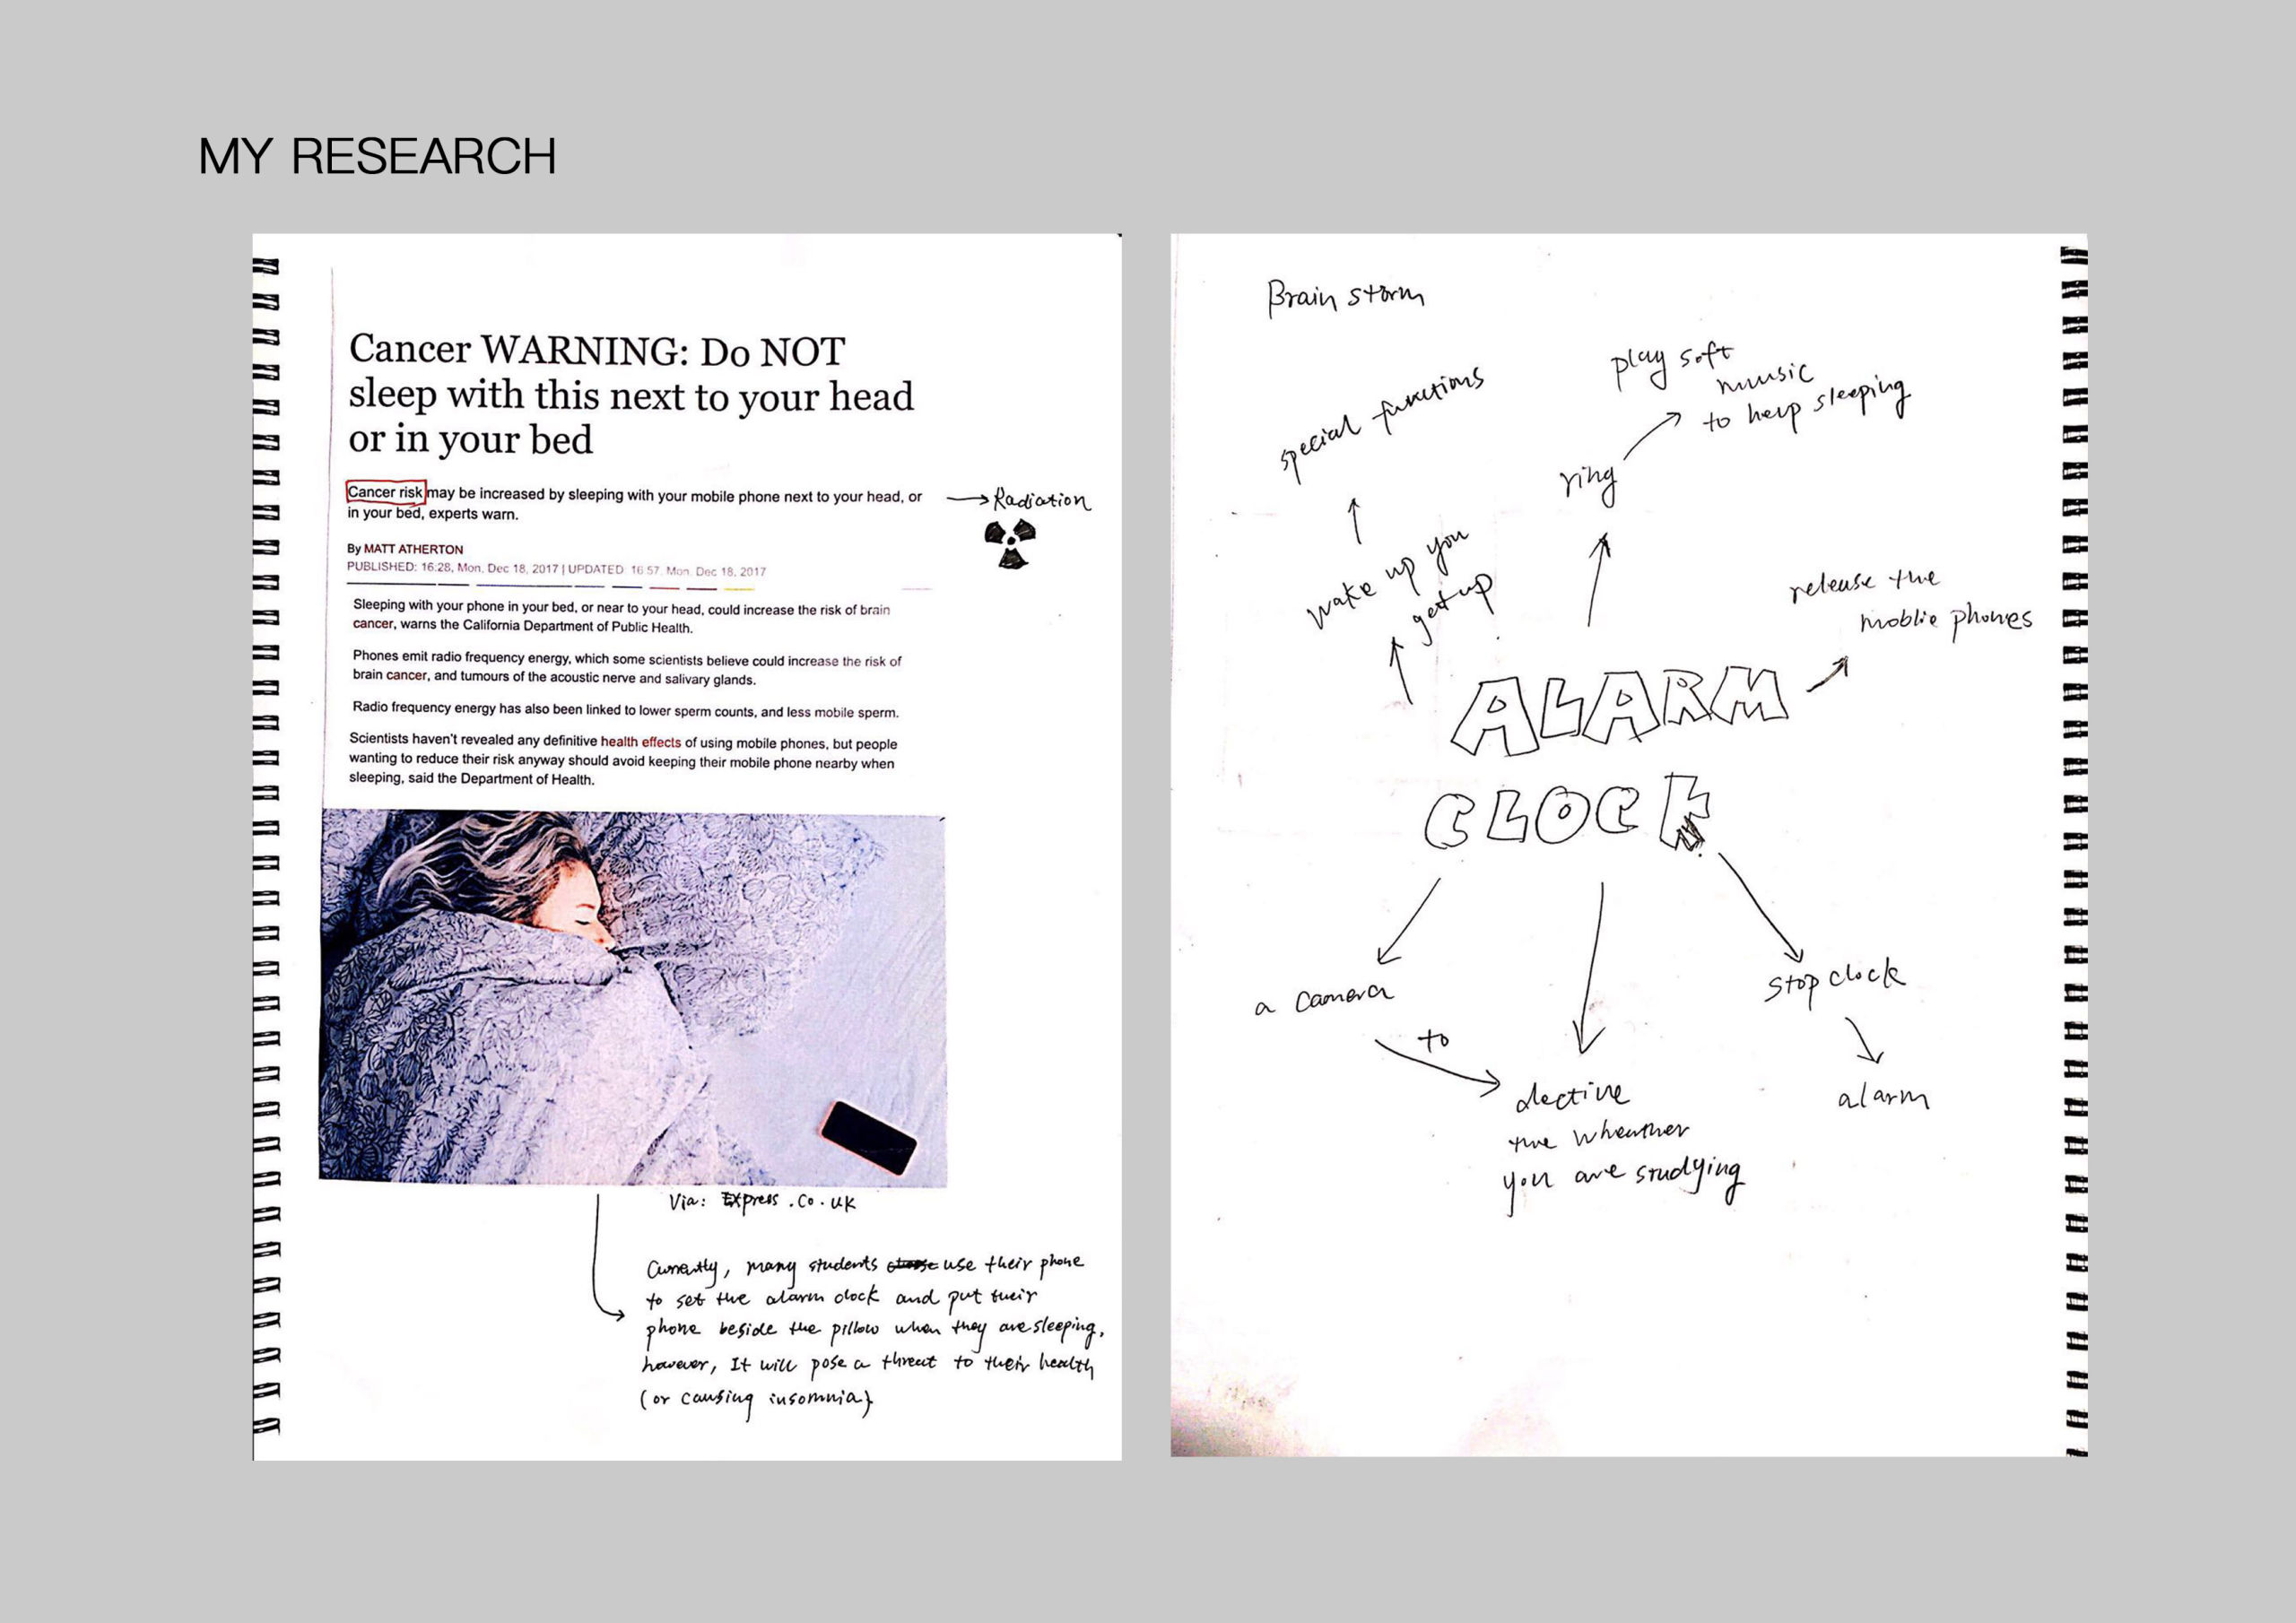 MY RESEARCH
Cancer WARNING: Do NOT
sleep with this next to your head
or in your bed
Cancer risk may be increased by sleeping with your mobile phone next to your head, or
in your bed, experts warn.
→ Radiation
By MATT ATHERTON
PUBLISHED: 16:28, Mon, Dec 18, 2017 | UPDATED: 16:57, Mon, Dec 18, 2017
Sleeping with your phone in your bed, or near to your head, could increase the risk of brain
cancer, warns the California Department of Public Health.
Phones emit radio frequency energy, which some scientists believe could increase the risk of
brain cancer, and tumours of the acoustic nerve and salivary glands.
Radio frequency energy has also been linked to lower sperm counts, and less mobile sperm.
Scientists haven't revealed any definitive health effects of using mobile phones, but people
wanting to reduce their risk anyway should avoid keeping their mobile phone nearby when
sleeping, said the Department of Health.
Via: Express.co.uk
Currently, many students use their phone
to set the alarm clock and put their
phone beside the pillow when they are sleeping,
however, It will pose a threat to their health
(or causing insomnia)
Brain storm
special functions
play soft
music
to help sleeping
ring
wake up you
get up
release the
moblie phones
ALARM
CLOCK
a camera
to
dective
the wheather
you are studying
stop clock
alarm